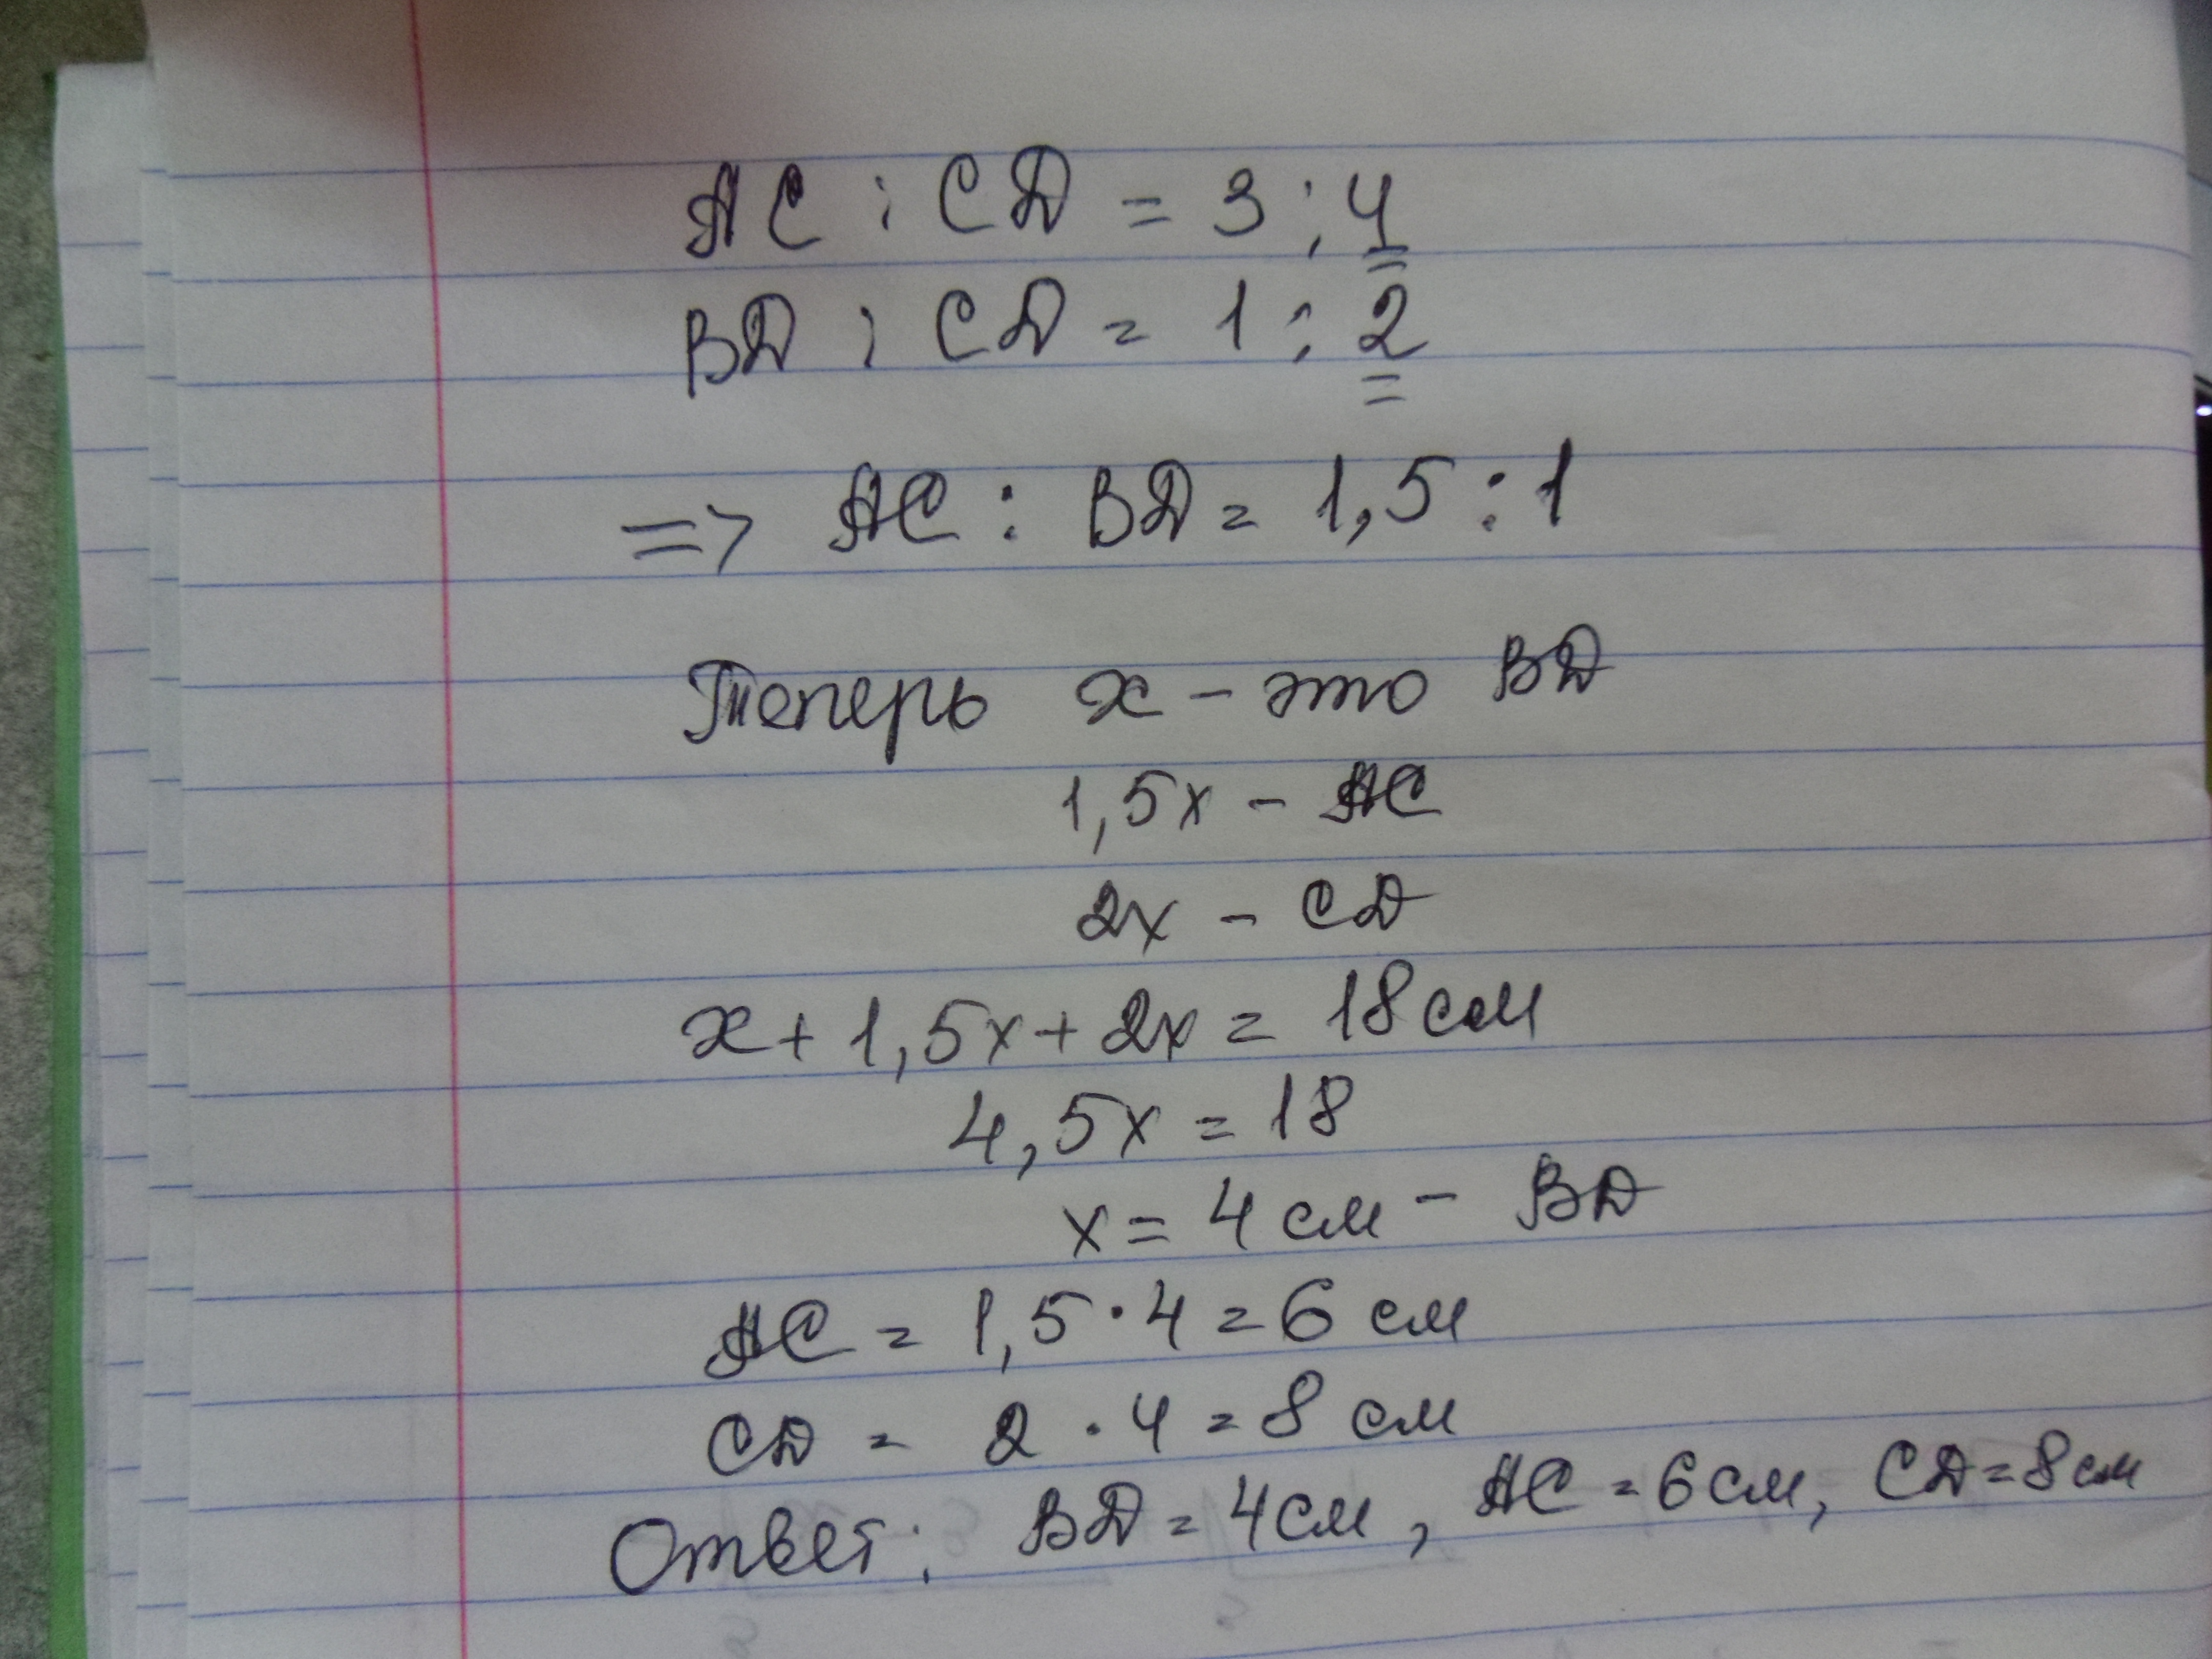 AC : CD = 3 : 4
BD : CD = 1 : 2
=> AC : BD = 1,5 : 1
Теперь x - это BD
1,5x - AC
2x - CD
x + 1,5x + 2x = 18 см
4,5x = 18
x = 4 см - BD
AC = 1,5 · 4 = 6 см
CD = 2 · 4 = 8 см
Ответ: BD = 4 см, AC = 6 см, CD = 8 см